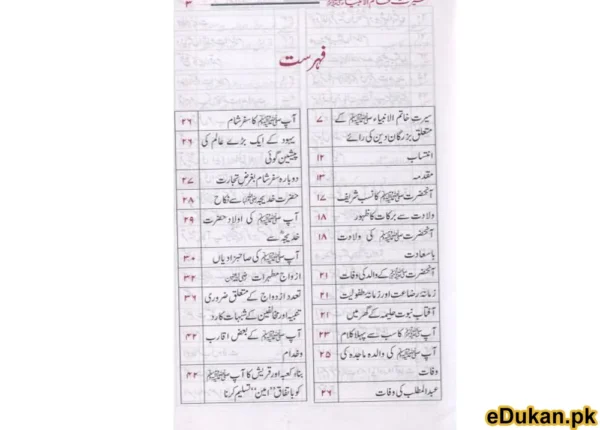 سیرت خاتم الانبیاء ﷺ
۳
فہرست
سیرت خاتم الانبیاء ﷺ کے
متعلق بزرگان دین کی رائے
۷
انتساب
۱۲
مقدمہ
۱۳
آنحضرت ﷺ کا نسب شریف
۱۷
ولادت سے برکات کا ظہور
۱۸
آنحضرت ﷺ کی ولادت
باسعادت
۱۸
آنحضرت ﷺ کے والد کی وفات
۲۱
زمانۂ رضاعت اور زمانۂ طفولیت
۲۱
آفتاب نبوت حلیمہ کے گھر میں
۲۱
آپ ﷺ کا سب سے پہلا کلام
۲۳
آپ ﷺ کی والدہ ماجدہ کی
وفات
۲۵
عبدالمطلب کی وفات
۲۶
آپ ﷺ کا سفر شام
۲۶
یہود کے ایک بڑے عالم کی
پیشین گوئی
۲۶
دوبارہ سفر شام بغرض تجارت
۲۷
حضرت خدیجہ سے نکاح
۲۸
آپ ﷺ کی اولاد حضرت
خدیجہؓ سے
۲۹
آپ ﷺ کی صاحبزادیاں
۳۰
ازواج مطہرات
۳۲
تعدد ازدواج کے متعلق ضروری
تنبیہ اور مخالفین کے شبہات کا رد
۳۶
آپ ﷺ کے بعض اقارب
وخدام
۴۲
بناء کعبہ اور قریش کا آپ ﷺ
کو باتفاق "امین" تسلیم کرنا
۴۲
eDukan.pk